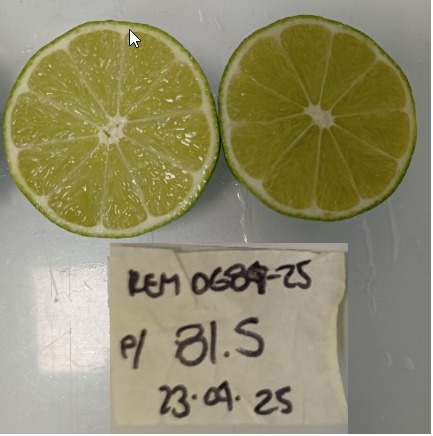 REM 0684-25
P/ 81.5
23.04.25